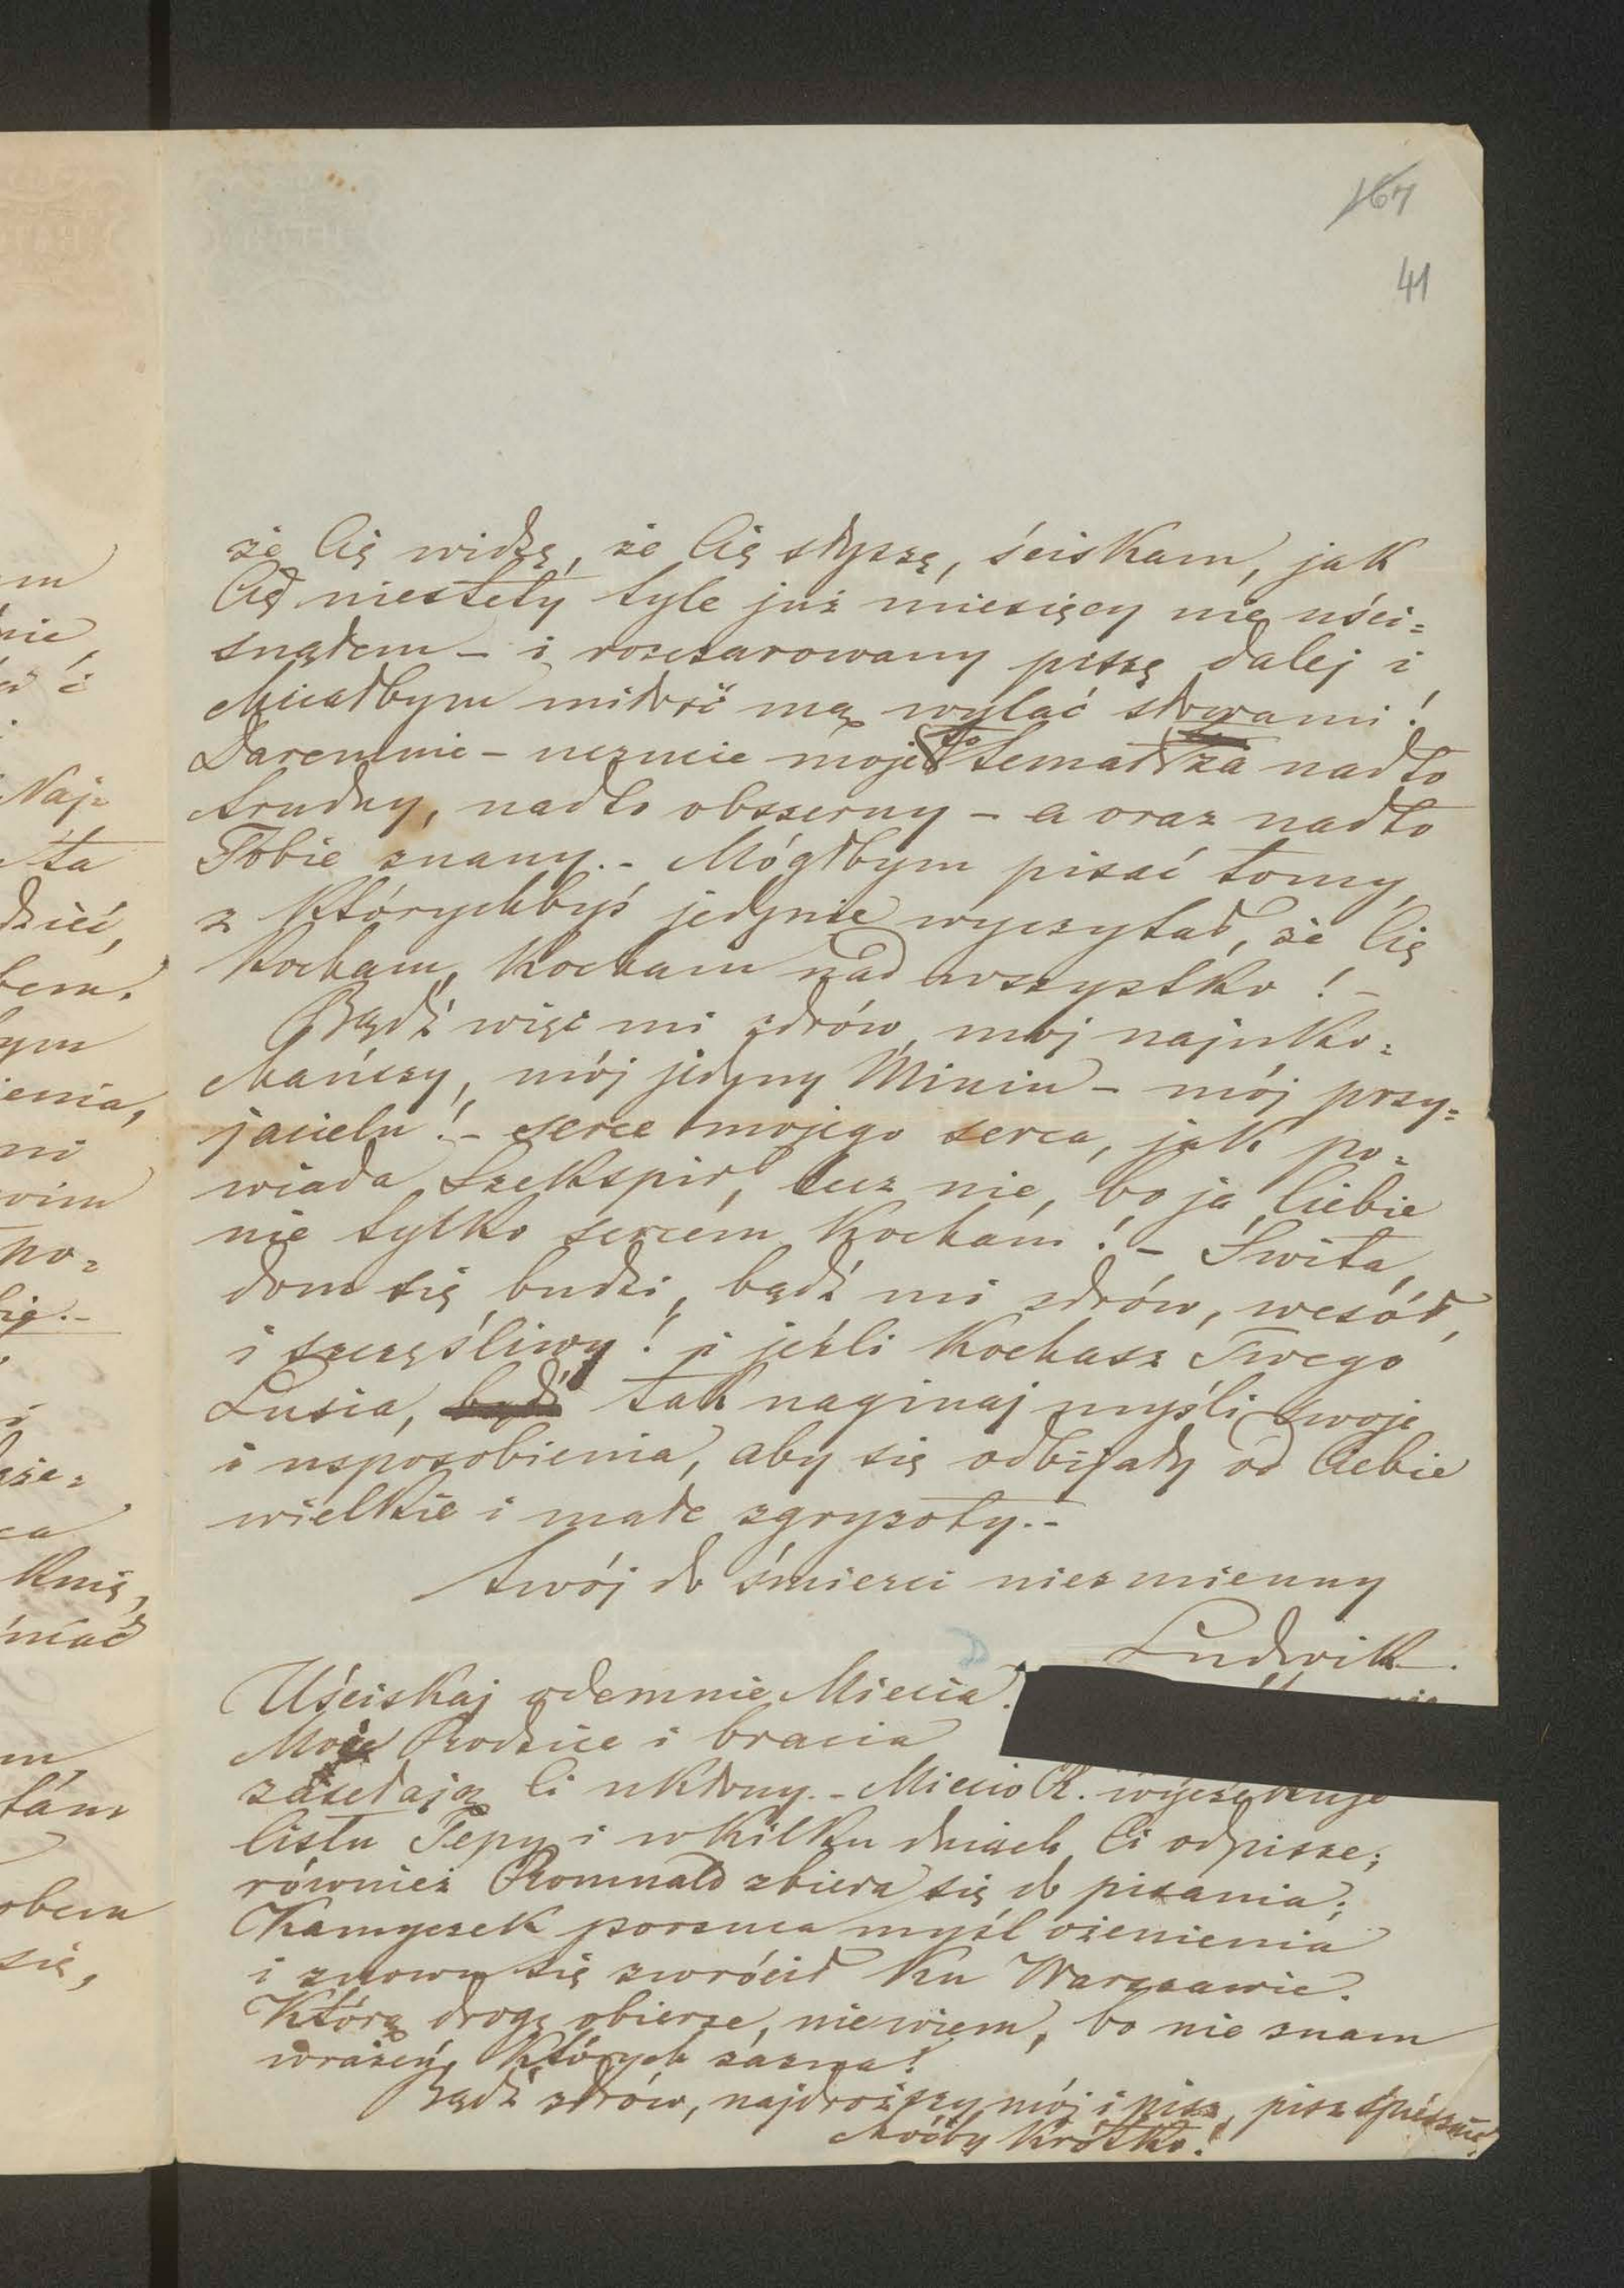 167
41
że Cię widzę, że Cię słyszę, ściskam, jak
Cię niestety tyle już miesięcy nie uści=
snąłem – i rozczarowany piszę dalej i
chciałbym miłość mą wylać słowami!
Daremnie – uczucie moje to temat za nadto
trudny, nadto obszerny – a oraz nadto
Tobie znany. – Mógłbym pisać tomy,
z którychbyś jedynie wyczytał, że Cię
kocham, kocham nad wszystko! –
Bądź więc mi zdrów, mój najuko=
chańszy, mój jedyny Miniu – mój przy=
jacielu! – serce mojego serca, jak po=
wiada Szekspir, lecz nie, bo ja Ciebie
nie tylko sercem kocham! – Świta,
dom się budzi, bądź mi zdrów, wesół,
i szczęśliwy! i jeżli kochasz Twego
Lusia, bądź tak naginaj myśli swoje
i usposobienia, aby się odbijały od Ciebie
wielkie i małe zgryzoty. –
twój do śmierci niezmienny
Ludwik.
Uściskaj odemnie Miecia.
Moje Rodzice i bracia
zasełają Ci ukłony. – Miecio R. wyczekuje
listu Tepy i w kilku dniach Ci odpisze;
również Romuald zbiera się do pisania;
Kamyczek porzuca myśl ożenienia
i znowu się zwrócił ku Warszawie.
Którą drogę obierze, niewiem, bo nie znam
wrażeń, których zazna!
Bądź zdrów, najdroższy mój i pisz, pisz spiesznie,
choćby krótko!